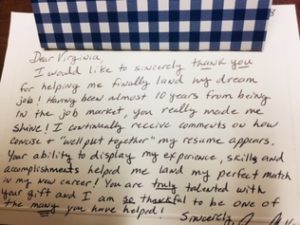 Dear Virginia,
I would like to sincerely thank you
for helping me finally land my dream
job! Having been almost 10 years from being
in the job market, you really made me
shine! I continually receive comments on how
concise & "well put together" my resume appears.
Your ability to display my experience, skills and
accomplishments helped me land my perfect match
in my new career! You are truly talented with
your gift and I am so thankful to be one of
the many you have helped!
Sincerely,